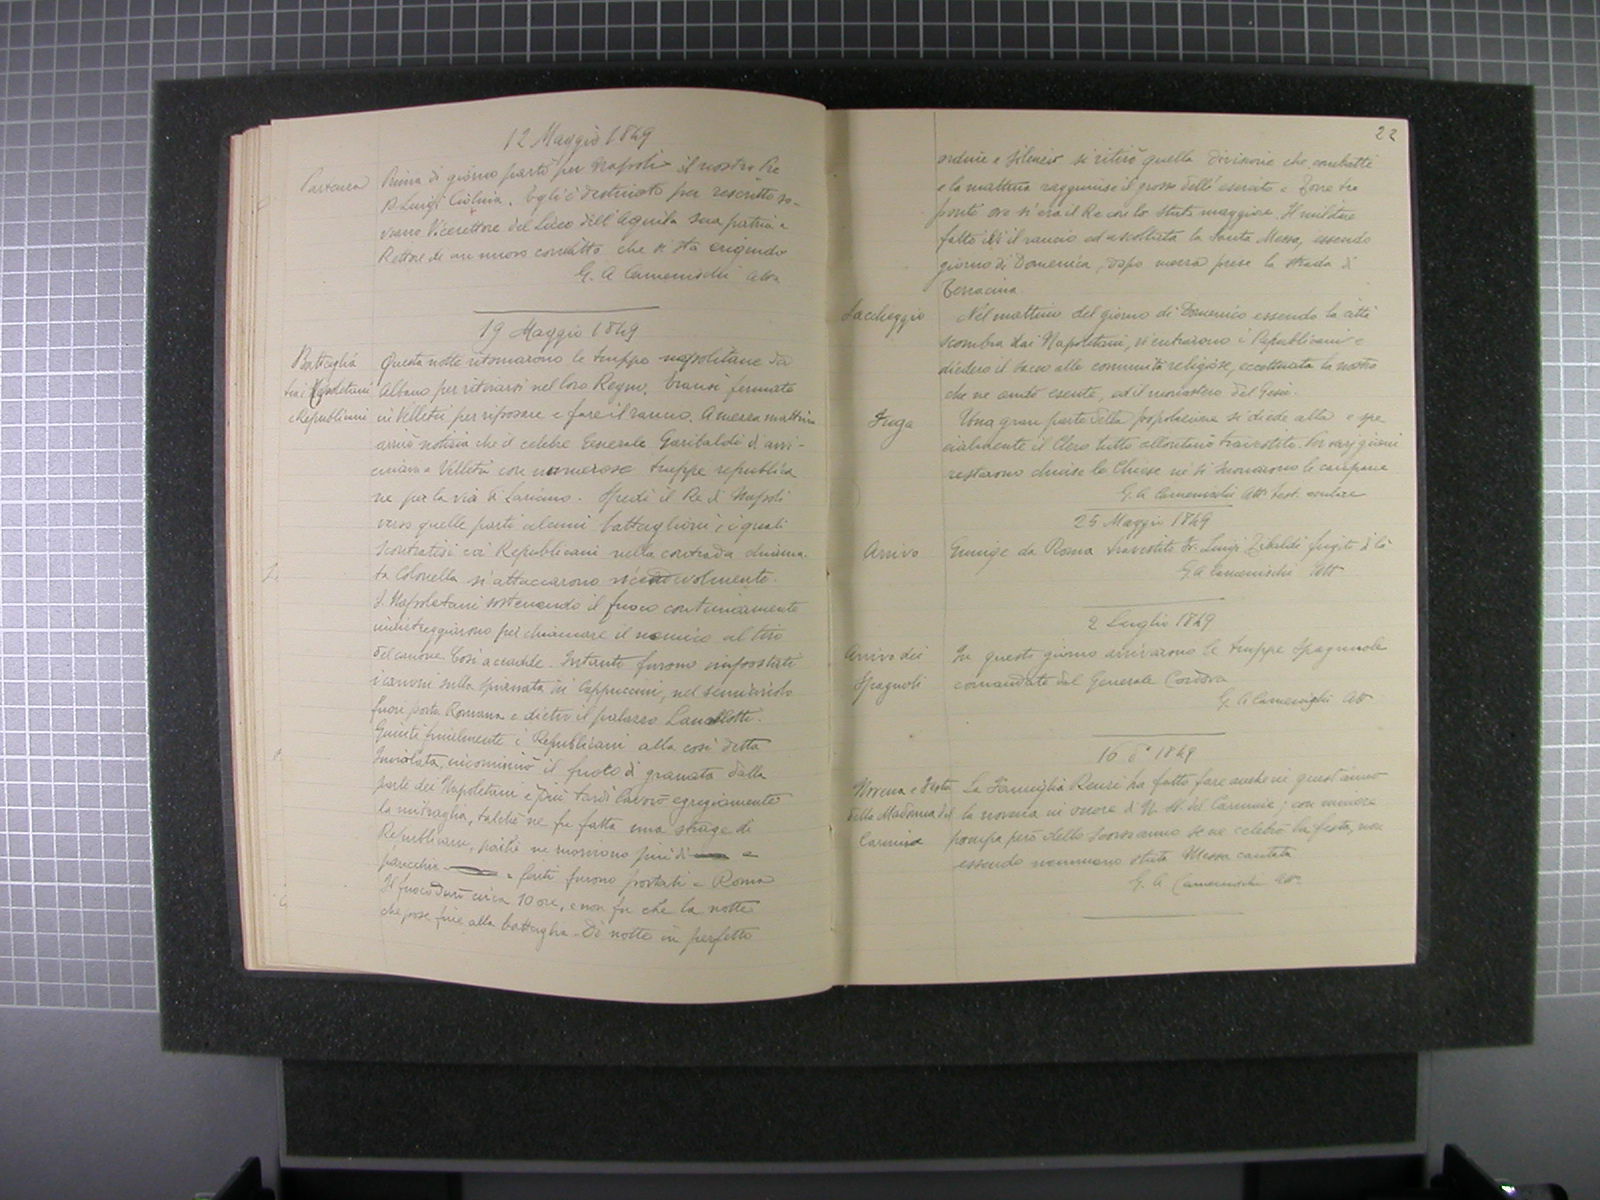 12 Maggio 1849
Partenza
Prima di giorno partì per Napoli il nostro Pre
D. Luigi Ciolina. Egli è destinato per rescritto so-
vrano Vicerettore del Liceo dell'Aquila sua patria e
Rettore di un nuovo convitto che si sta erigendo
G. A Camenischi
19 Maggio 1849
Battaglia
tra i Napoletani
e Republicani
Questa notte ritornarono le truppe napolitane da
Albano per ritirarsi nel loro Regno. Eransi fermate
in Velletri per riposare e fare il rancio. A mezza mattina
arrivò notizia che il celebre Generale Garibaldi s'avvi-
cinava a Velletri con numerose truppe republica
ne per la via di Lariano. Spedì il Re di Napoli
verso quelle parti alcuni battaglioni, i quali
scontratisi coi Republicani nella contrada chiama-
ta Colonella si attaccarono vicendevolmente.
I Napoletani sostenendo il fuoco continuamente
indietreggiarono per chiamare il nemico al tiro
del canone. Così accadde. Intanto furono impostati
i canoni sulla spianata dei Cappuccini, nel semicircolo
fuori porta Romana e dietro il palazzo Lancellotti.
Giunti finalmente i Republicani alla così detta
Inviolata, incominciò il fuoco di granata dalla
parte dei Napoletani e più tardi lavorò egregiamente
la mitraglia, talchè ne fu fatta una strage di
Republicani, poichè ne morirono più di
parecchie e feriti furono portati a Roma
Il fuoco durò circa 10 ore, e non fu che la notte
che pose fine alla battaglia. Di notte in perfetto
22
ordine e silenzio si ritirò quella divisione che combattè
e la mattina raggiunse il grosso dell'esercito a Torre tre
ponti ove si era il Re con lo stato maggiore. Il militare
fatto ivi il rancio ed ascoltata la Santa Messa, essendo
giorno di Domenica, dopo prese la strada di
Terracina.
Saccheggio
Nel mattino del giorno di Domenica essendo la città
sgombra dai Napoletani, vi entrarono i Republicani e
diedero il sacco alle comunità religiose, eccettuata la nostra
che ne andò esente, ed il monastero del Gesù.
Fuga
Una gran parte della popolazione si diede alla e spe
cialmente il Clero tutto allontanò travestito. Per varj giorni
restarono chiuse le Chiese nè si suonarono le campane
G. A Camenischi Att. test. oculare
25 Maggio 1849
Arrivo
Giunge da Roma travestito Fr. Luigi Zibaldi fugito di là
G. A Camenischi Att
2 Luglio 1849
Arrivo dei
Spagnoli
In questo giorno arrivarono le truppe Spagnuole
comandate dal Generale Cordova
G. A Camenischi Att
16 do 1849
Novena e Festa
della Madonna del
Carmine
La Famiglia Renzi ha fatto fare anche in quest'anno
la novena in onore di N. S. del Carmine; con minore
pompa però dello scorso anno se ne celebrò la festa, non
essendo nemmeno stata Messa cantata
G. A Camenischi Att.